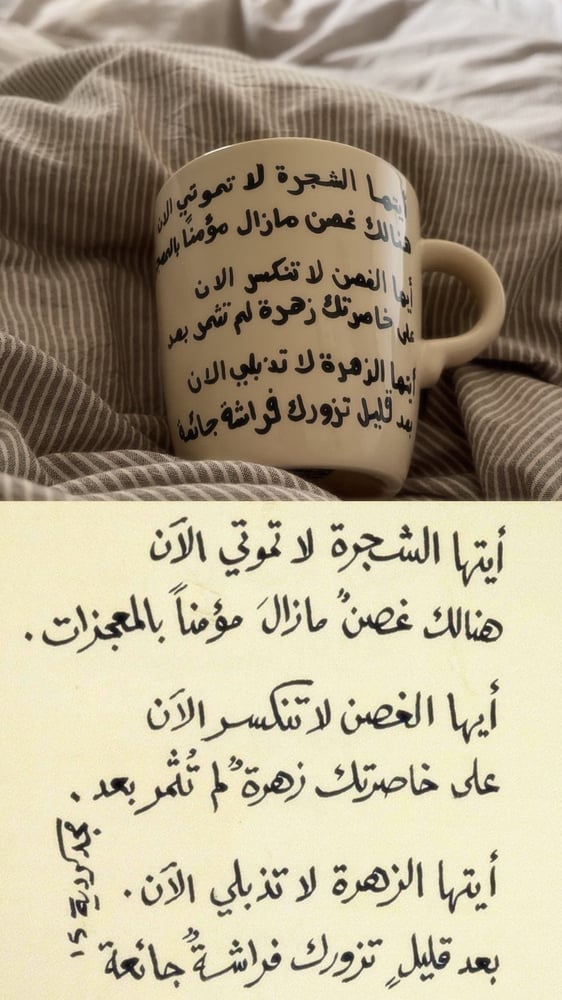 أيتها الشجرة لا تموتي الان
هنالك غصن مازال مؤمنًا
أيها الغصن لا تنكسر الان
على خاصرتك زهرة لم تثمر بعد
أيتها الزهرة لا تذبلي الان
بعد قليل تزورك فراشة جائعة
أيتها الشجرة لا تموتي الآن
هنالك غصنٌ مازالَ مؤمناً بالمعجزات.
أيها الغصن لا تنكسر الآن
على خاصرتك زهرةٌ لم تُثْمر بعد.
أيتها الزهرة لا تذبلي الآن.
بعد قليلٍ تزورك فراشةٌ جائعة
مجد كردية ١٥